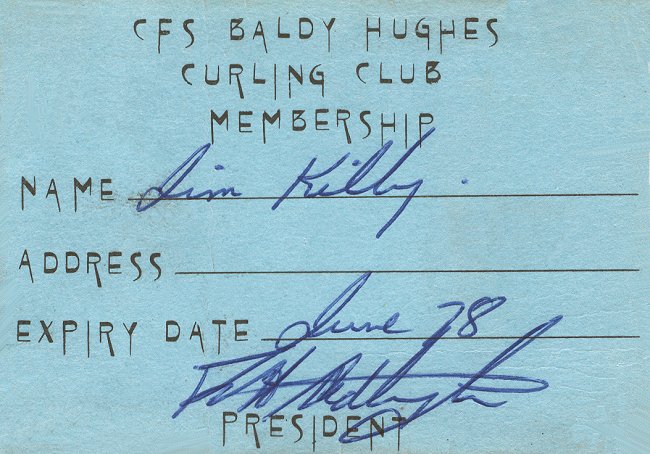 CFS BALDY HUGHES
CURLING CLUB
MEMBERSHIP
NAME Jim Kilby.
ADDRESS
EXPIRY DATE June 78
PRESIDENT